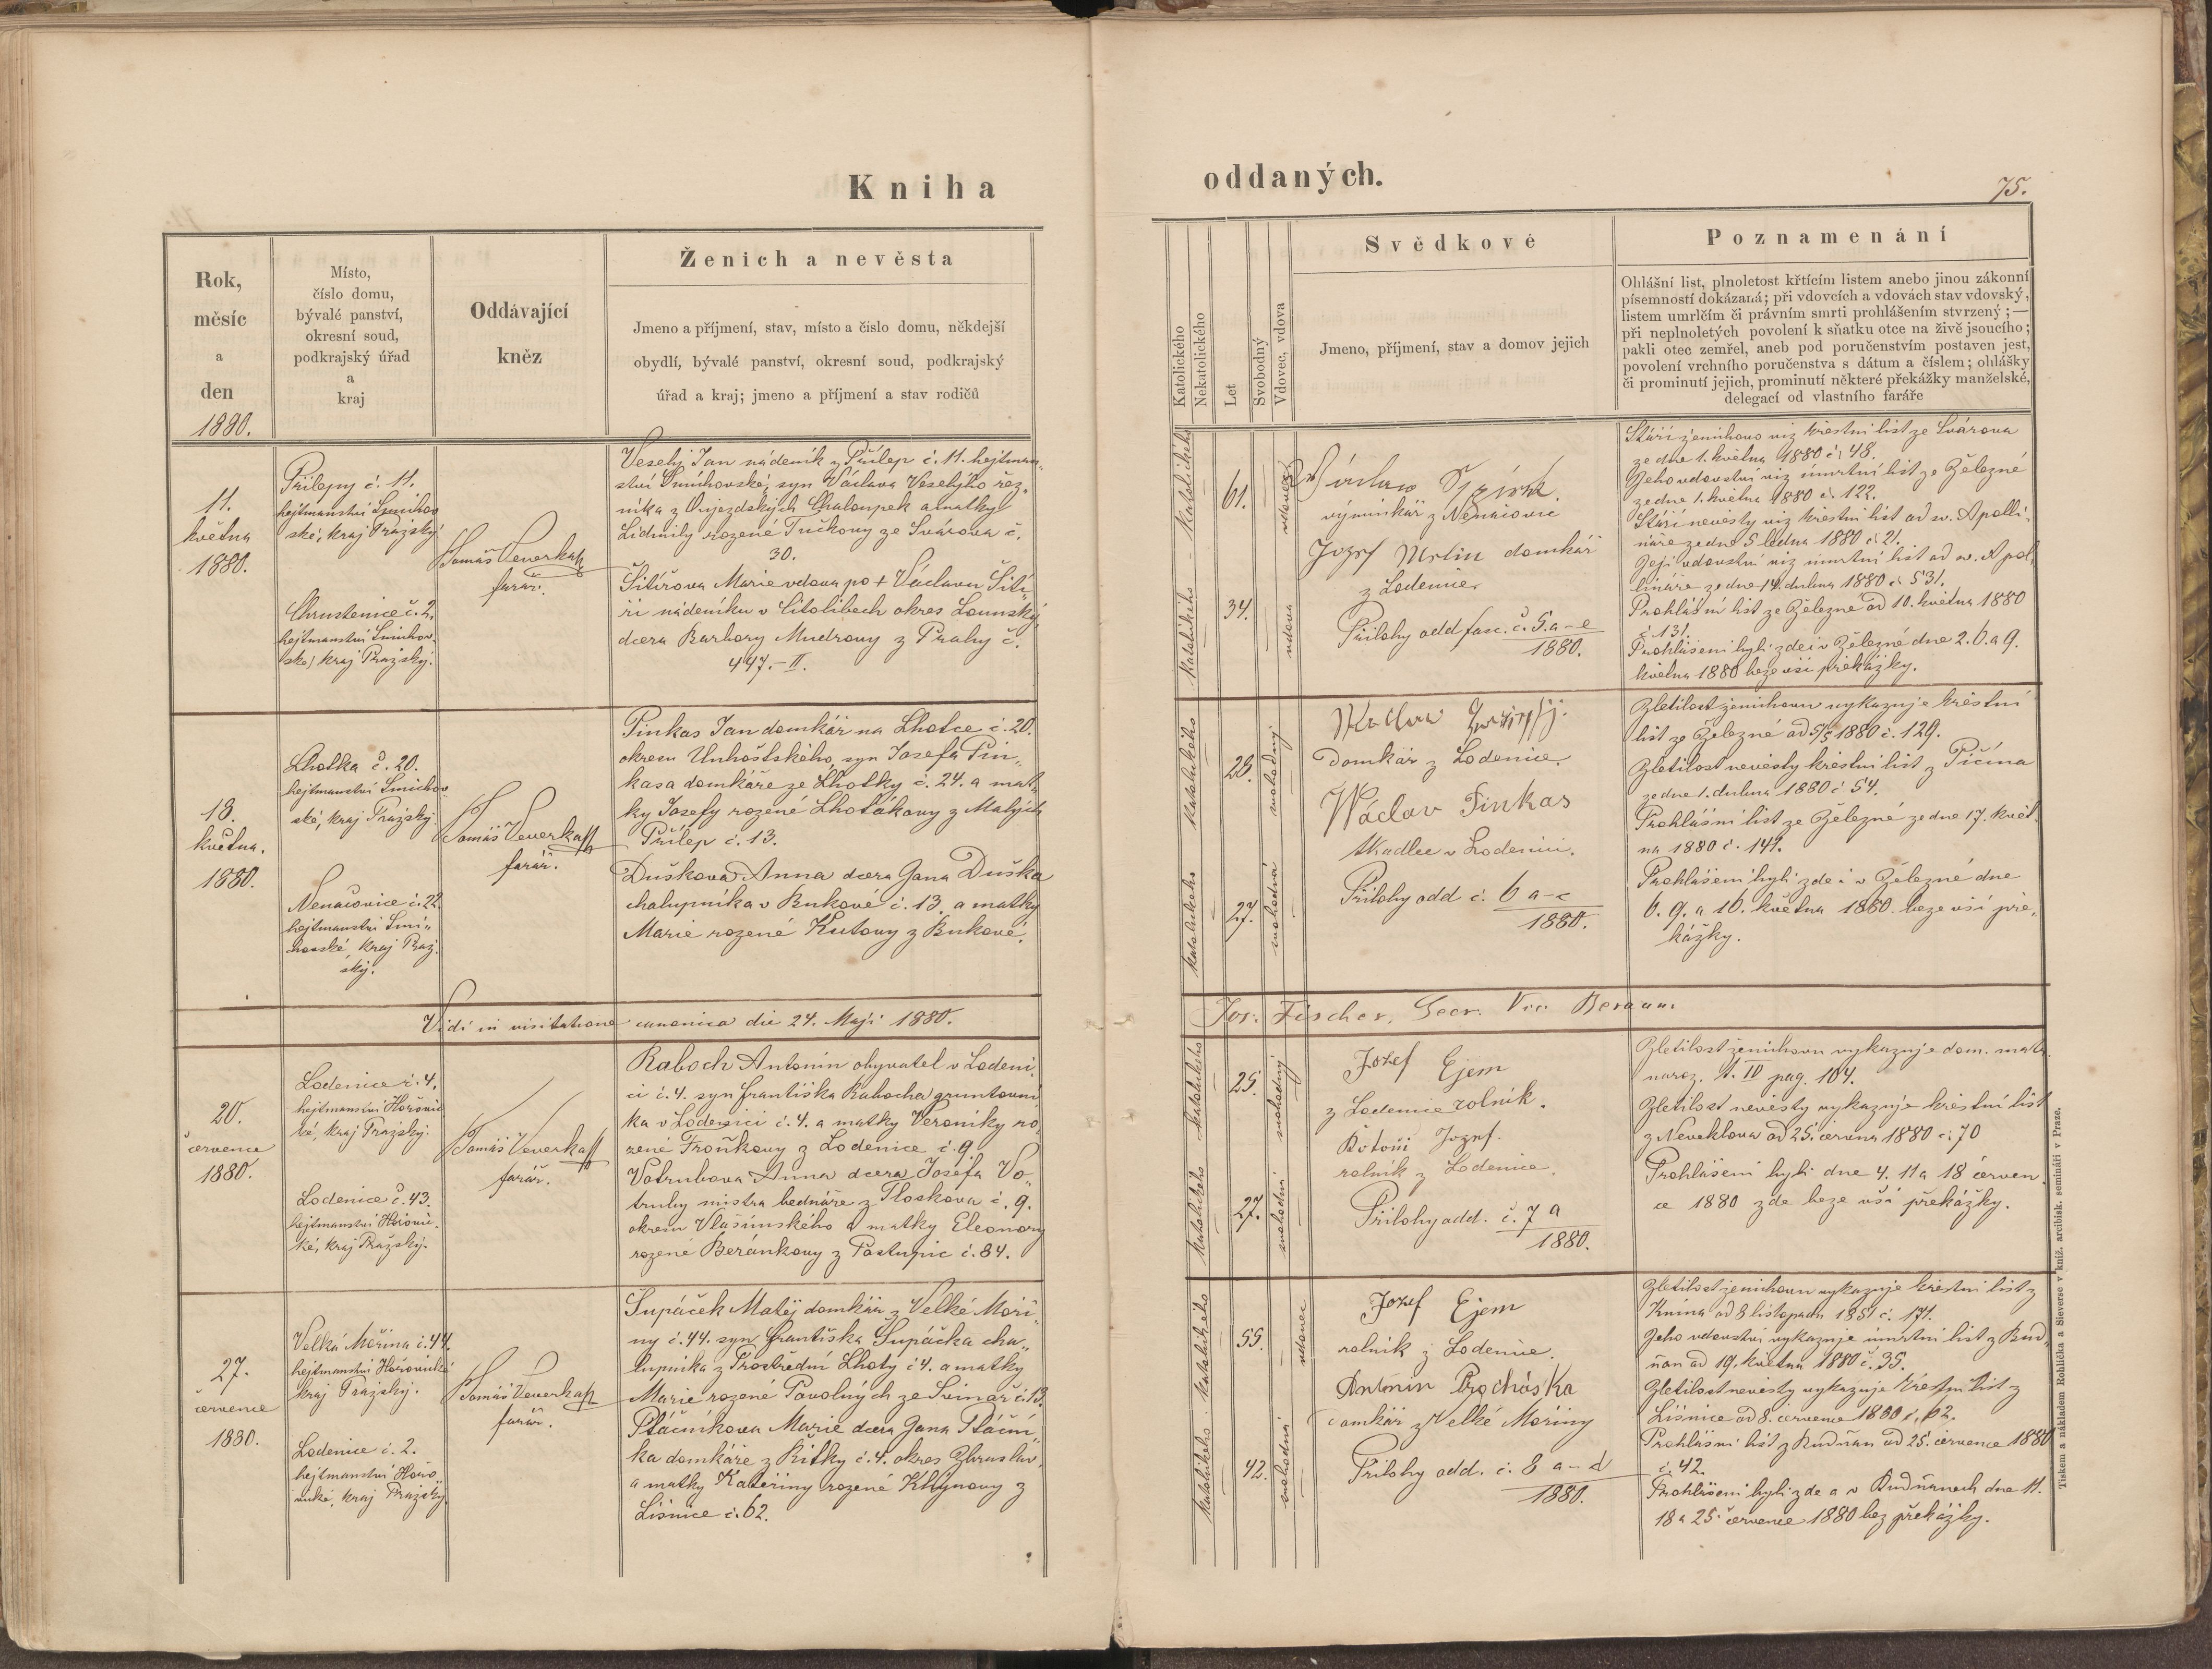 Kniha
oddaných.
75.
Rok,
měsíc
a
den
1880.
Místo,
číslo domu,
bývalé panství,
okresní soud,
podkrajský úřad
a
kraj
Oddávající
kněz
Ženich a nevěsta
Jmeno a příjmení, stav, místo a číslo domu, někdejší
obydlí, bývalé panství, okresní soud, podkrajský
úřad a kraj; jmeno a příjmení a stav rodičů
Katolického
Nekatolického
Let
Svobodný
Vdovec, vdova
Svědkové
Jmeno, příjmení, stav a domov jejich
Poznamenání
Ohlášní list, plnoletost křtícím listem anebo jinou zákonní
písemností dokázaná; při vdovcích a vdovách stav vdovský,
listem umrlčím či právním smrti prohlášením stvrzený; —
při neplnoletých povolení k sňatku otce na živě jsoucího;
pakli otec zemřel, aneb pod poručenstvím postaven jest,
povolení vrchního poručenstva s dátum a číslem; ohlášky
či prominutí jejich, prominutí některé překážky manželské,
delegací od vlastního faráře
11.
května
1880.
Přílepy č. 11.
hejtmanství Smíchov
ské, kraj Pražský
Chrustenice č. 2.
hejtmanství Smíchov
ské, kraj Pražský.
Tomáš Veverka
farář.
Veselý Jan nádeník z Přílep č. 11. hejtman-
ství Smíchovské, syn Václava Veselýho řez-
níka z Oujezdských Chaloupek a matky
Lidmily rozené Tučkovy ze Svárova č.
30.
Šitířova Marie vdova po † Václavu Šití-
ři nádeníku v Citolibech okres Lounský
dcera Barbory Mudrovy z Prahy č.
447.-II.
Katolického
61.
vdovec
Katolického
34.
vdova
Václav
výminkář z Nenačovic
Jozef Mrlin domkář
z Lodenice
Přílohy add fasc. č. 5. a–e
1880.
Stáří ženichovo viz křestní list ze Svárova
ze dne 1. května 1880 č. 48.
Jeho vdovství viz úmrtní list ze Železné
ze dne 1. května 1880 č. 122.
Stáří nevěsty viz křestní list od sv. Apolli-
náře ze dne 5 ledna 1880 č. 21.
Její vdovství viz úmrtní list od sv. Apol-
lináře ze dne 14. dubna 1880 č. 531.
Prohlášní list ze Železné od 10. května 1880
č. 131.
Prohlášeni byli zde i v Železné dne 2. 6. a 9.
května 1880 beze vší překážky.
18.
května.
1880.
Lhotka č. 20.
hejtmanství Smíchov
ské, kraj Pražský.
Nenačovice č. 22.
hejtmanství Smí-
chovské, kraj Praž-
ský.
Tomáš Veverka
farář.
Pinkas Jan domkář na Lhotce č. 20.
okresu Unhošťského, syn Josefa Pin-
kasa domkáře ze Lhotky č. 24. a mat-
ky Josefy rozené Lhotákovy z Malých
Přílep č. 13.
Dušková Anna dcera Jana Duška
chalupníka v Bukové č. 13. a matky
Marie rozené Kutovy z Bukové.
Katolického
28.
svobodný
Katolického
27.
svobodná
Domkář z Lodenice.
Wáclav Pinkas
tkadlec v Lodenici.
Přílohy add č. 6 a–c
1880.
Zletilost ženichovu vykazuje křestní
list ze Železné od 5/5 1880 č. 129.
Zletilost nevěsty křestní list z Pičína
ze dne 1. dubna 1880 č. 54.
Prohlášní list ze Železné ze dne 17. květ-
na 1880 č. 141.
Prohlášeni byli zde i v Železné dne
6. 9. a 16. května 1880 beze vší pře-
kážky.
Vidi in visitatione canonica die 24. Maji 1880.
Jos. Fischer, Secr. Vic. Beraun.
20.
července
1880.
Lodenice č. 4.
hejtmanství Hořovic
ké, kraj Pražský.
Lodenice č. 43.
hejtmanství Hořovic-
ké, kraj Pražský.
Tomáš Veverka
farář.
Raboch Antonín obyvatel v Lodeni-
ci č. 4. syn Františka Rabocha gruntovní-
ka v Lodenici č. 4. a matky Veroniky ro-
zené Froňkovy z Lodenice č. 9.
Votrubova Anna dcera Josefa Vo-
truby mistra bednáře z Tloskova č. 9.
okresu Vlašimského a matky Eleonory
rozené Beránkovy z Postupic č. 84.
Katolického
25.
svobodný
Katolického
27.
svobodná
Jozef Ejem
z Lodenice rolník.
Jozef.
rolník z Lodenice.
Přílohy add. č. 7 a
1880.
Zletilost ženichovu vykazuje dom. mat.
naroz. t. IV pag. 104.
Zletilost nevěsty vykazuje křestní list
z Neveklova od 25. června 1880 č. 70
Prohlášeni byli dne 4. 11 a 18 červen-
ce 1880 zde beze vší překážky.
27.
července
1880.
Velká Mořina č. 44.
hejtmanství Hořovické
kraj Pražský.
Lodenice č. 2.
hejtmanství Hořo-
vické, kraj Pražský.
Tomáš Veverka
farář.
Šupáček Matěj domkář z Velké Moři-
ny č. 44. syn Františka Šupáčka cha-
lupníka z Prostřední Lhoty č 4. a matky
Marie rozené Povolných ze Svinař č. 13.
Ptáčníkova Marie dcera Jana Ptáční-
ka domkáře z Řitky č. 4. okres Zbraslav.
a matky Kateřiny rozené Khýnovy z
Líšnice č. 62.
Katolického
55.
vdovec
Katolického
42.
svobodná
Jozef Ejem
rolník z Lodenice.
Antonin Procháska
domkář z Velké Mořiny
Přílohy add. č. 8 a–d
1880.
Zletilost ženichovu vykazuje křestní list z
Knína od 8 listopadu 1851 č. 171.
Jeho vdovství vykazuje úmrtní list z Bud-
ňan od 19. května 1880 č. 35.
Zletilost nevěsty vykazuje křestní list z
Líšnice od 8. července 1880 č. 62.
Prohlášní list z Budňan od 25. července 1880
č. 42.
Prohlášeni byli zde a v Budňanech dne 11.
18 a 25. července 1880 bez překážky.
Tiskem a nákladem Rohlíčka a Sieverse v kníž. arcibisk. semináři v Praze.